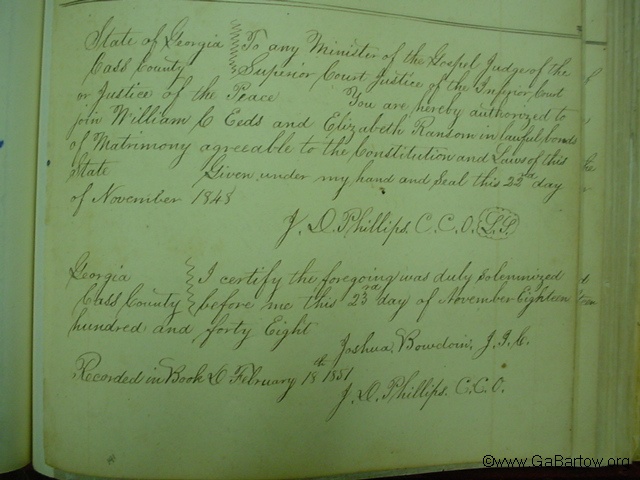 State of Georgia To any Minister of the Gospel Judge of the
Cass County Superior Court Justice of the Inferior Court
or Justice of the Peace You are hereby authorized to
join William C Eeds and Elizabeth Ransom in lawful bonds
of Matrimony agreeable to the Constitution and Laws of this
State Given under my hand and Seal this 22nd day
of November 1848
J. D. Phillips. C.C.O. L.S.
Georgia I certify the foregoing was duly Solemnized
Cass County before me this 23rd day of November Eighteen
hundred and forty Eight
Joshua Bowdoin, J.I.C.
Recorded in Book D February 18th 1851
J. D. Phillips. C.C.O.
©www.GaBartow.org